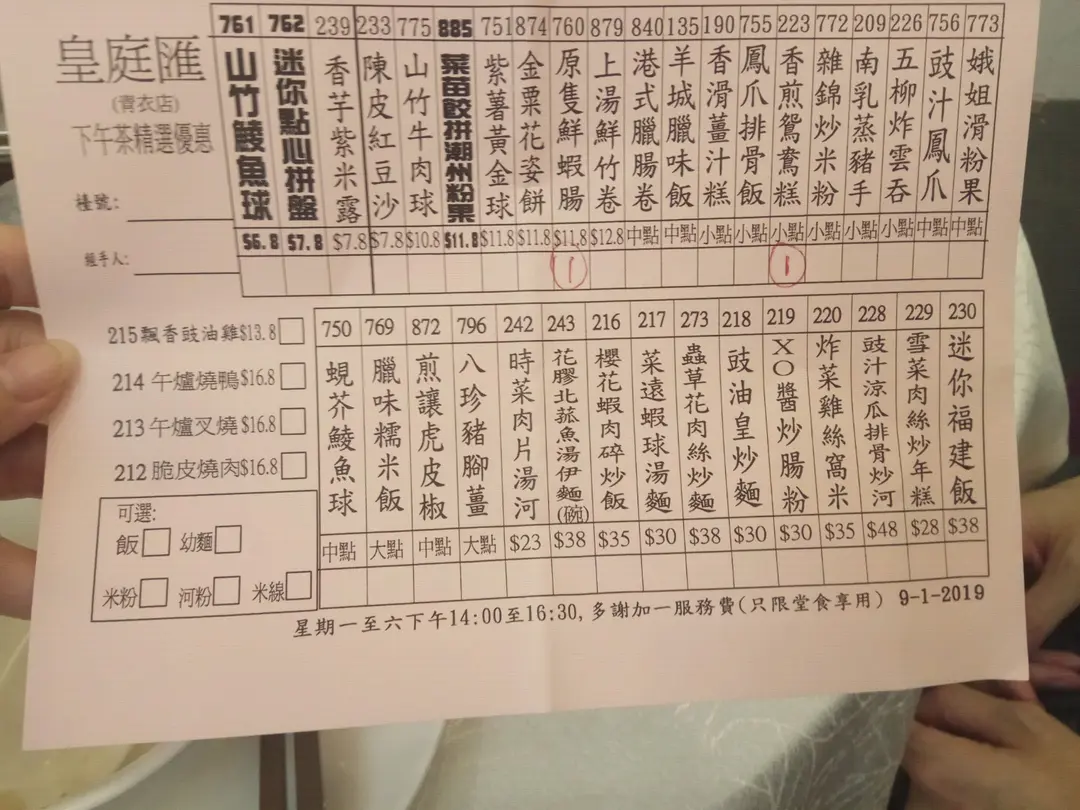 皇庭匯
(青衣店)
下午茶精選優惠
檯號:
經手人:
761 山竹鯪魚球 $6.8
762 迷你點心拼盤 $7.8
239 香芋紫米露 $7.8
233 陳皮紅豆沙 $7.8
775 山竹牛肉球 $10.8
885 菜苗餃拼潮州粉果 $11.8
751 紫薯黃金球 $11.8
874 金粟花姿餅 $11.8
760 原隻鮮蝦腸 $11.8 1
879 上湯鮮竹卷 $12.8
840 港式臘腸卷 中點
135 羊城臘味飯 中點
190 香滑薑汁糕 小點
755 鳳爪排骨飯 小點
223 香煎鴛鴦糕 小點 1
772 雜錦炒米粉 小點
209 南乳蒸豬手 小點
226 五柳炸雲吞 小點
756 豉汁鳳爪 中點
773 娥姐滑粉果 中點
215 飄香豉油雞 $13.8
214 午爐燒鴨 $16.8
213 午爐叉燒 $16.8
212 脆皮燒肉 $16.8
可選:
飯 幼麵
米粉 河粉 米線
750 蜆芥鯪魚球 中點
769 臘味糯米飯 大點
872 煎讓虎皮椒 中點
796 八珍豬腳薑 大點
242 時菜肉片湯河 $23
243 花膠北菰魚湯伊麵(碗) $38
216 櫻花蝦肉碎炒飯 $35
217 菜遠蝦球湯麵 $30
273 蟲草花肉絲炒麵 $38
218 豉油皇炒麵 $30
219 XO醬炒腸粉 $30
220 炸菜雞絲窩米 $35
228 豉汁涼瓜排骨炒河 $48
229 雪菜肉絲炒年糕 $28
230 迷你福建飯 $38
星期一至六下午14:00至16:30,多謝加一服務費(只限堂食享用) 9-1-2019